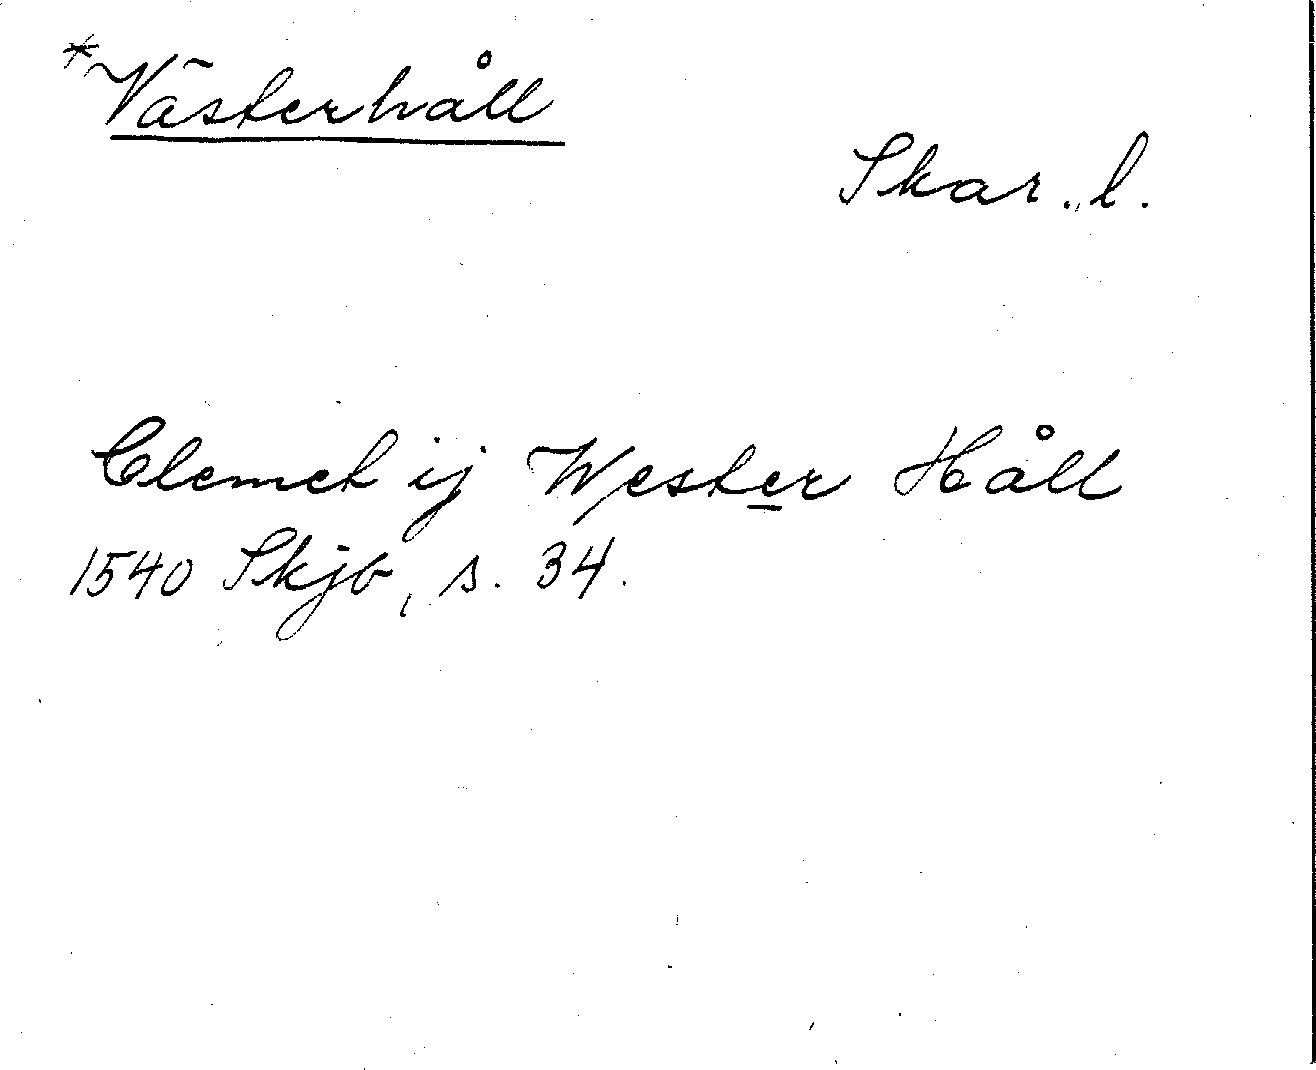 *Västerhåll
Skar. l.
Clemet ij Wester Håll
1540 Skjb, s. 34.